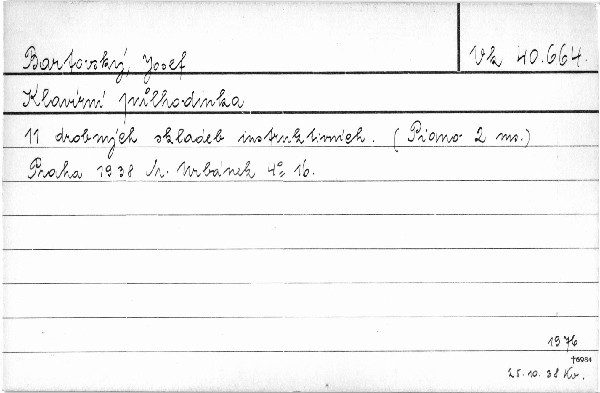 Bartovský, Josef
Vk 40.664.
Klavírní půlhodinka
11 drobných skladeb instruktivních. (Piano 2 ms.)
Praha 1938 Fr. Urbánek 4° 16.
1976
†6984
25.10.38 Kv.